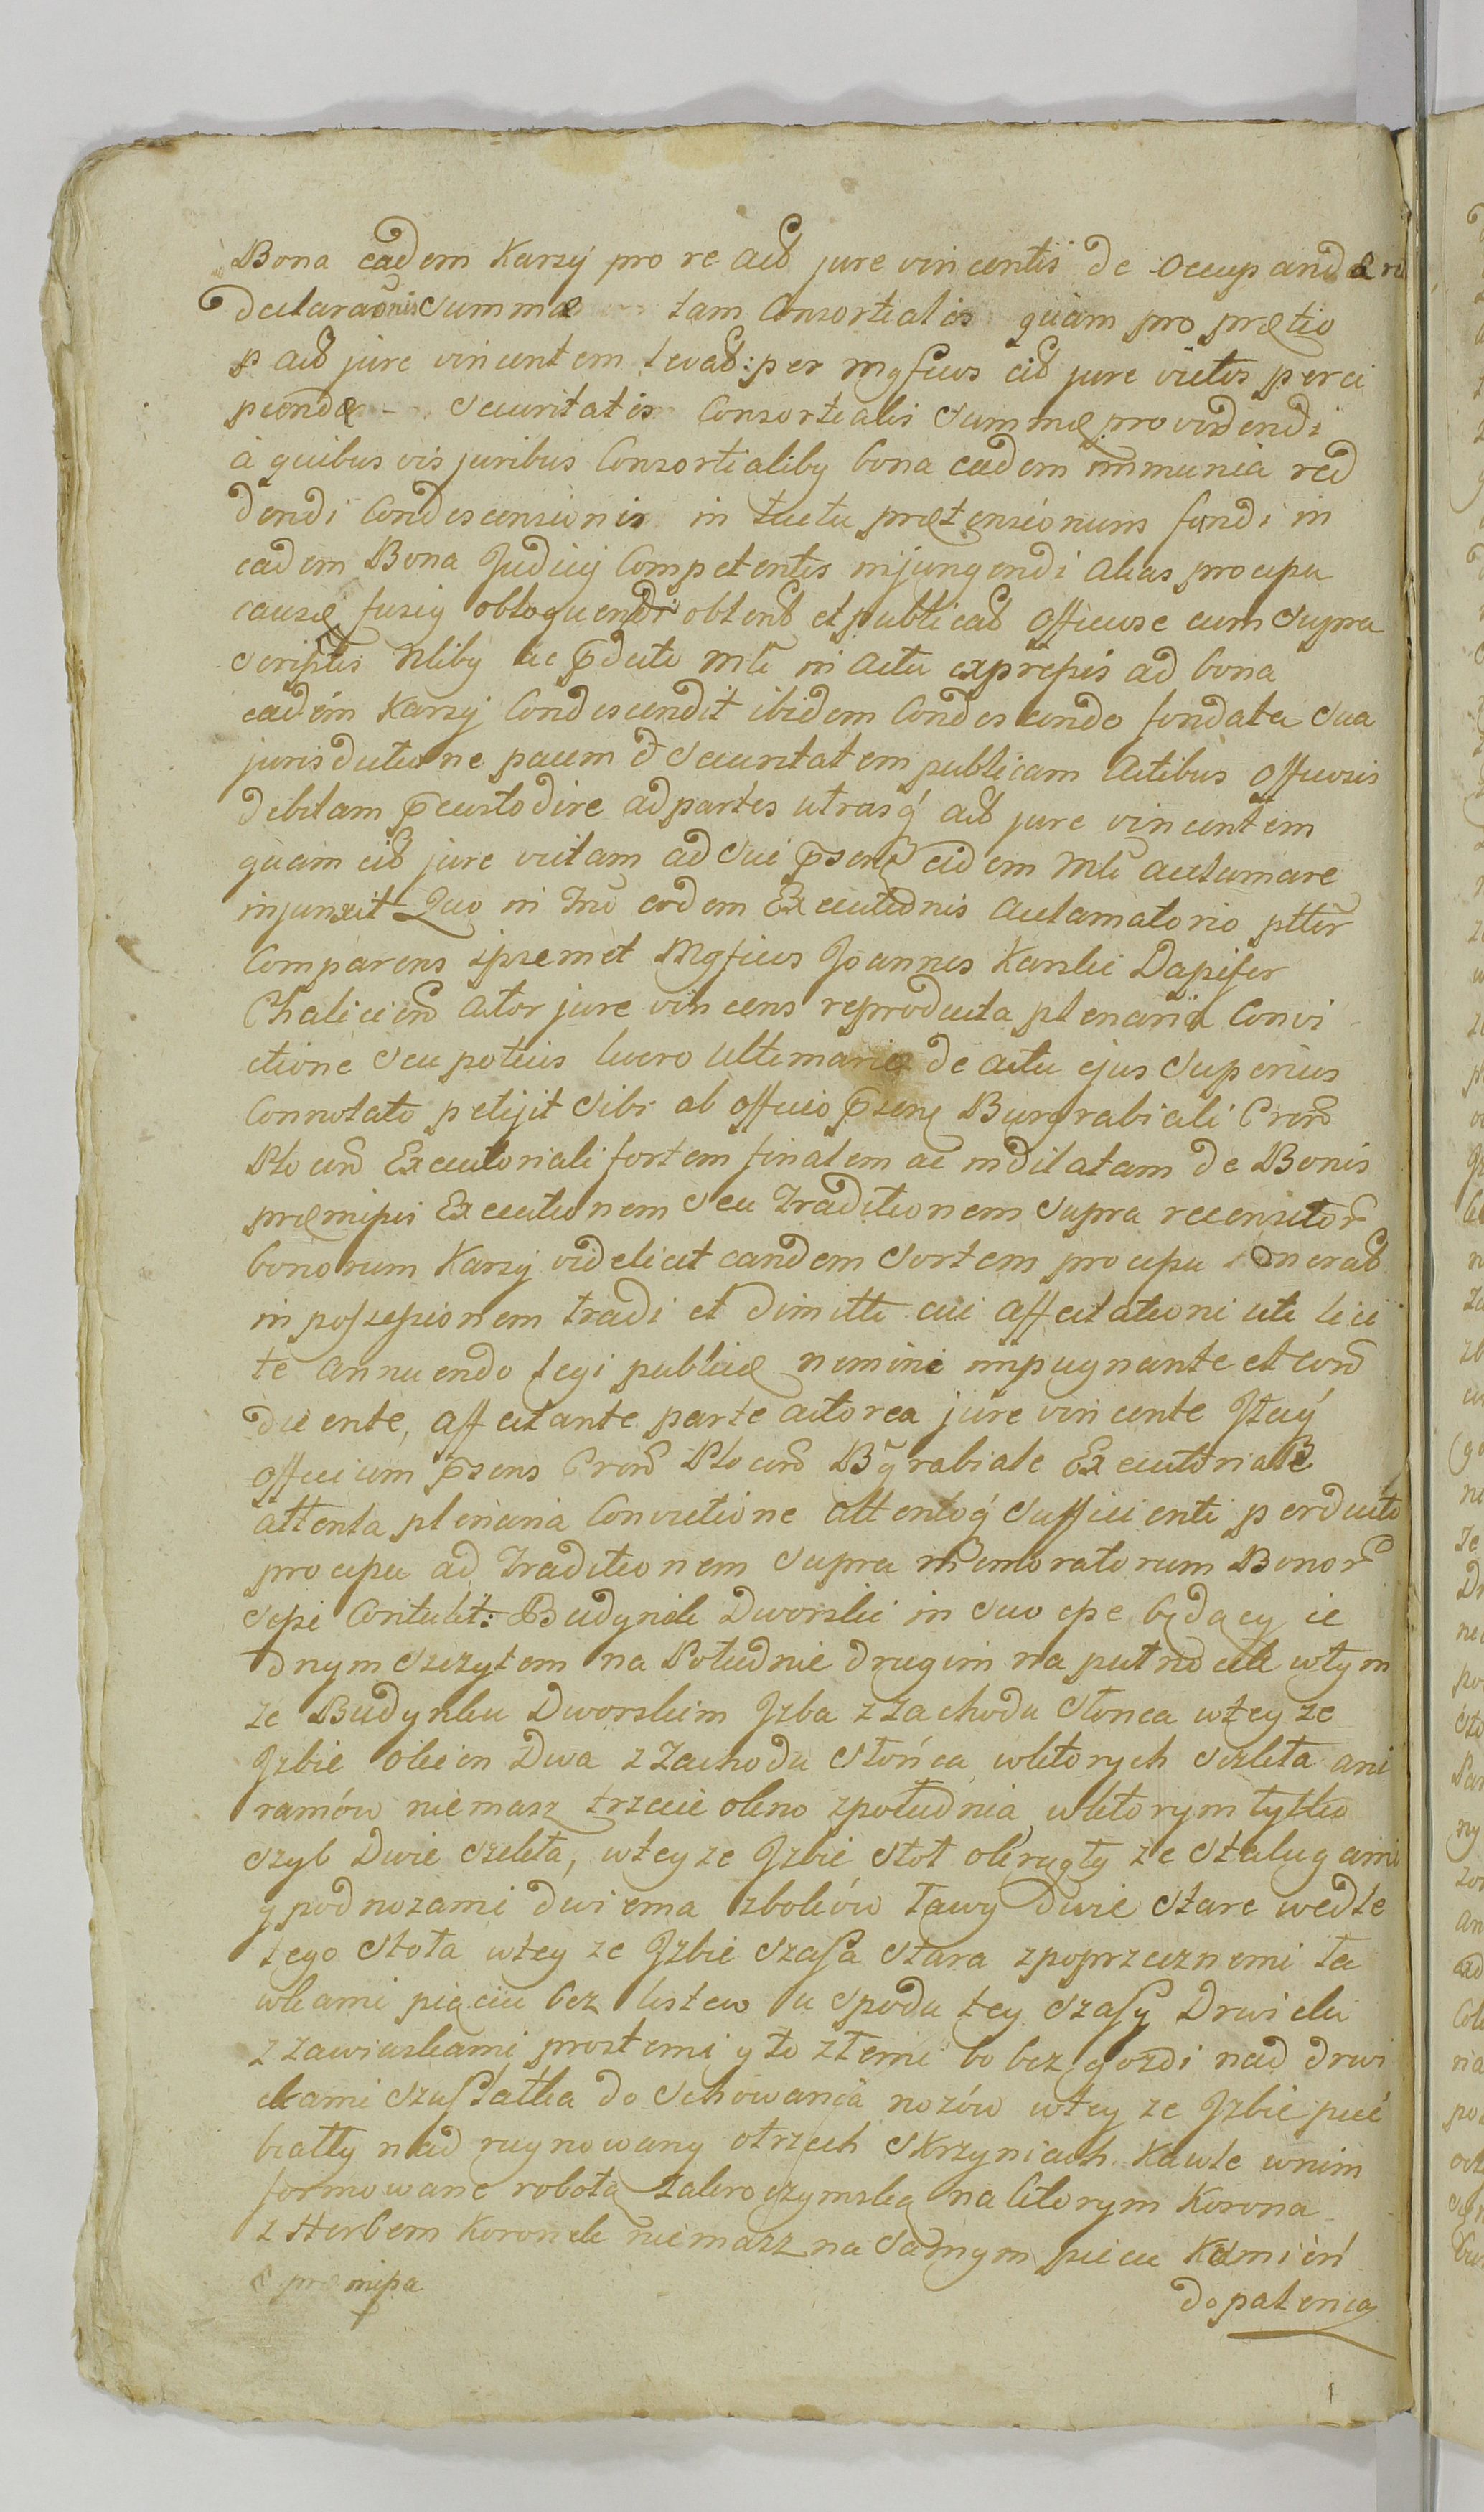 Bona eadem Karzy pro re actõ jure vincentis de occupandæ
declaraõnis Summæ tam Consortialis quàm pro prætio
p actõ jure vincentem levatõ: per Mgficos citõ jure victos perci
piendæ Securitatis Consortialis Summæ providendi
à quibus vis juribus Consortialiby bona eadem immunia red
dendi Condescensionis in tuetu prætensionum fundi in
eadem Bona Judicij Competentis injungendi alias procupu
causæ fusiy obloquendi obtentõ et publicatõ officiose cum supra
scriptis Nliby ac p̃dicto Mli in actu exprepis ad bona
eadem Karzy Condescendit ibidem Condescendo fundata sua
jurisdictione pacem & securitatem publicam actibus officiosis
debitam p̃custodire ad partes utrasq́ actõ jure vincentem
quam citõ jure victam ad sui p̃sentę eidem Mli acclamare
injunxit Quo in Tño eodem Executionis acclamatorio ptter
Comparens ipsemet Mgficus Joannes Karski Dapifer
Chalicieñ actor jure vincens reproducta plenaria Convi
ctione seu potius lucro ultimariæ de actu ejus superius
Connotato petijit sibi ab officio p̃senę Burgrabiali Creñ
Ploceñ Executoriali fortem finalem ac mditatam de Bonis
præmipis Executionem seu Traditionem supra recensitor̃
bonorum Karzy videlicet eandem sortem procupu oneratõ
in possepionem tradi et dimitti cui affectationi uti lici
te annuendo legi publicæ nemine impugnante et coñ
dicente, affectante parte actorea jure vincente Itaq́
officium p̃sens Creñ Ploceñ Bg̃rabiale Executoriale
attenta plenaria Convictione attentoq́ sufficienti perducto
procupu ad Traditionem supra memoratorum Bonor̃
sepe Contulit: Budynek Dworski in suo epe będący ie
dnym szczytem na Południe drugim na pułnocek wtym
ze Budynku Dworskim Izba z zachodu słonca wtey ze
Izbie okien Dwa z Zachodu słońca wktorych szkła ani
ramów niemasz trzecie okno zpołudnia wktorym tylko
szyb Dwie szkła, wtey ze Izbie stoł okrągły ze stalugami
y podnozami dwiema zbokow ławy Dwie stare wedle
tego stoła wtey ze Izbie szafa stara zpoprzecznemi ta
wkami pięciu bez listew u spodu tey szafy Drwiclu
z zawiaskami prostemi y to złemi bo bez gozdi nad drwi
ckami szuflatka do schowania nozów wtey ze Izbie piec
biały nad rugnowany otrzech skrzyniach Kawle wnim
formowane robotą Zakroczymską na ktorym Korona
z Herbem Koronek niemasz na samym piecu Kamień
præmipa
do palenia